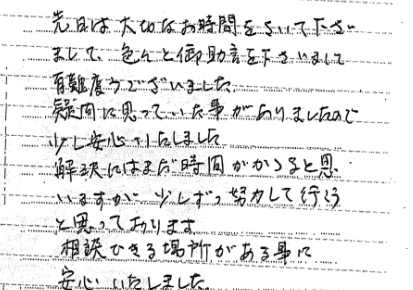 先日は大切なお時間をさいて下さい
まして、色々と御助言を下さいまして
有難度うございました。
疑問に思っていた事がありましたので
少し安心いたしました
解決にはまだ時間がかかると思
いますが 少しずつ努力して行こう
と思っております。
相談できる場所がある事に
安心いたしました。